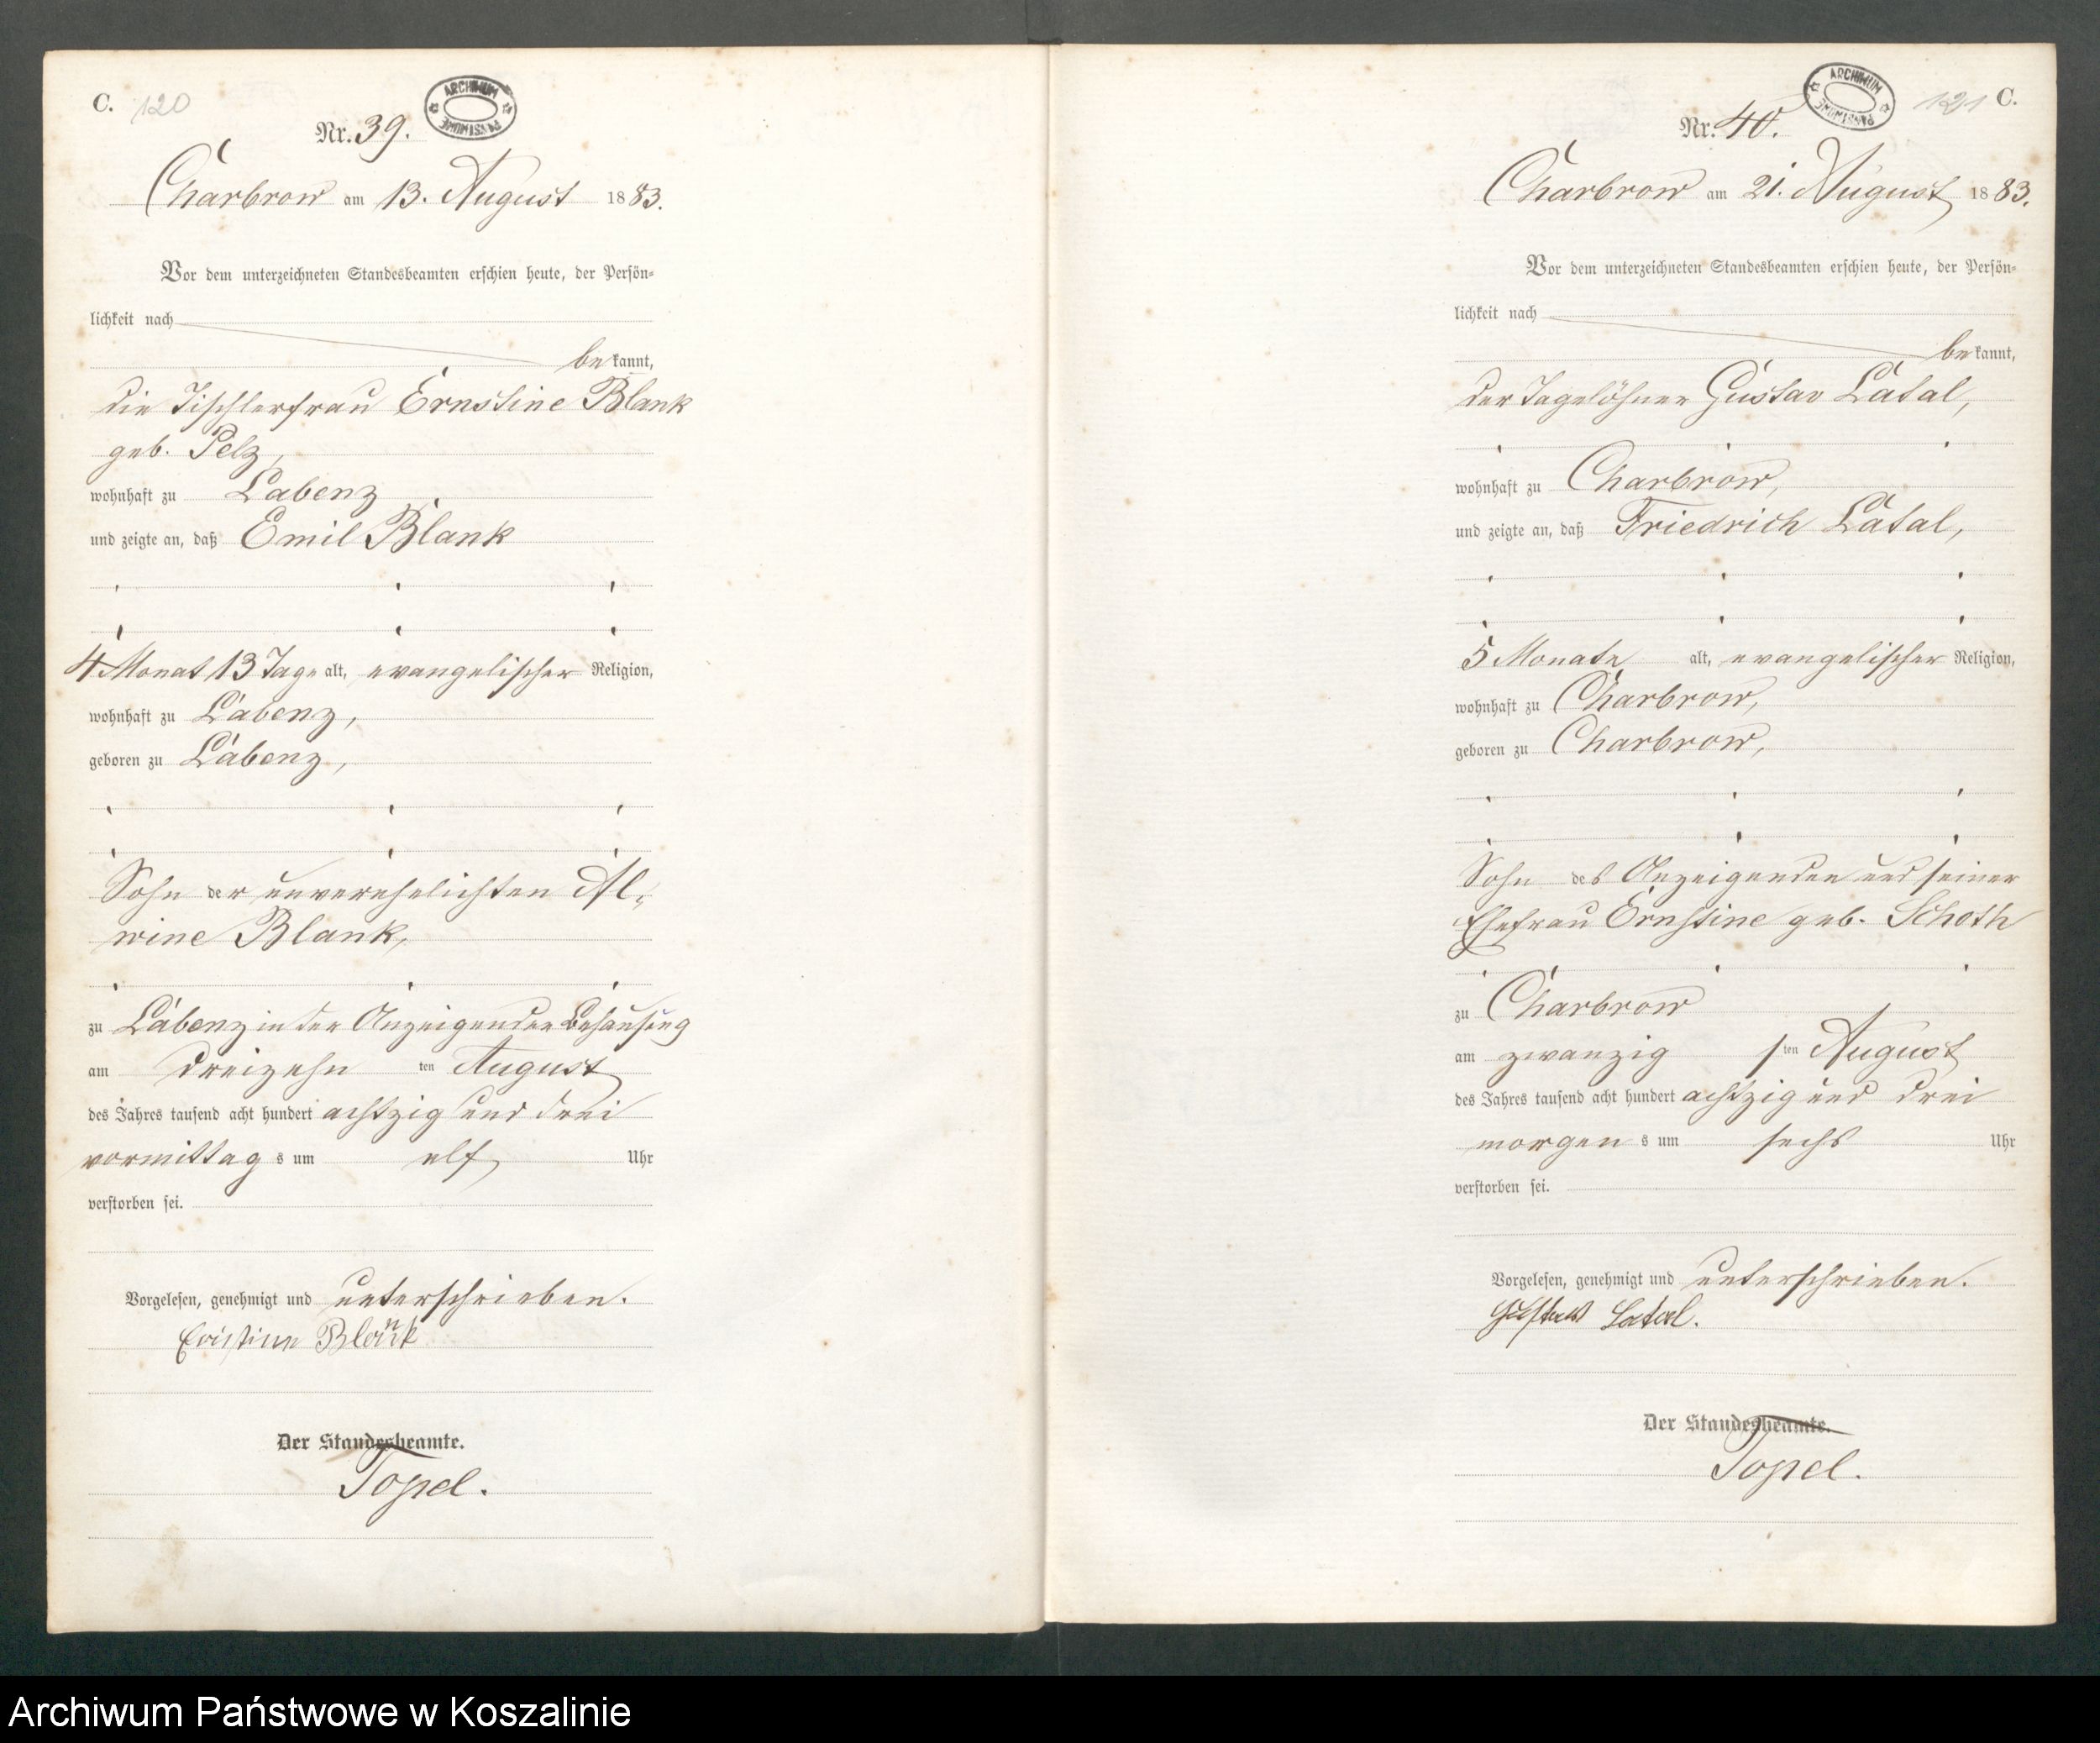 C. 120
ARCHIWUM PAŃSTWOWE
Nr. 39.
Charbrow am 13. August 1883.
Vor dem unterzeichneten Standesbeamten erschien heute, der Persön-
lichkeit nach
bekannt,
die Tischlerfrau Ernstine Blank
geb. Pelz,
wohnhaft zu Labenz
und zeigte an, daß Emil Blank
4 Monat 13 Tage alt, evangelischer Religion,
wohnhaft zu Labenz,
geboren zu Labenz,
Sohn der unverehelichten Al-
wine Blank,
zu Labenz in der Anzeigenden Behausung
am dreizehn ten August
des Jahres tausend acht hundert achtzig und drei
vormittag s um elf Uhr
verstorben sei.
Vorgelesen, genehmigt und unterschrieben.
Blank
Der Standesbeamte.
Topel.
121 C.
ARCHIWUM PAŃSTWOWE
Nr. 40.
Charbrow am 21. August 1883.
Vor dem unterzeichneten Standesbeamten erschien heute, der Persön-
lichkeit nach
bekannt,
der Tagelöhner Gustav Latal,
wohnhaft zu Charbrow,
und zeigte an, daß Friedrich Latal,
5 Monate alt, evangelischer Religion,
wohnhaft zu Charbrow,
geboren zu Charbrow,
Sohn des Anzeigenden und seiner
Ehefrau Ernstine geb. Schoth
zu Charbrow
am zwanzig sten August
des Jahres tausend acht hundert achtzig und drei
morgen s um sechs Uhr
verstorben sei.
Vorgelesen, genehmigt und unterschrieben.
Gustaw Latal.
Der Standesbeamte.
Topel.
Archiwum Państwowe w Koszalinie